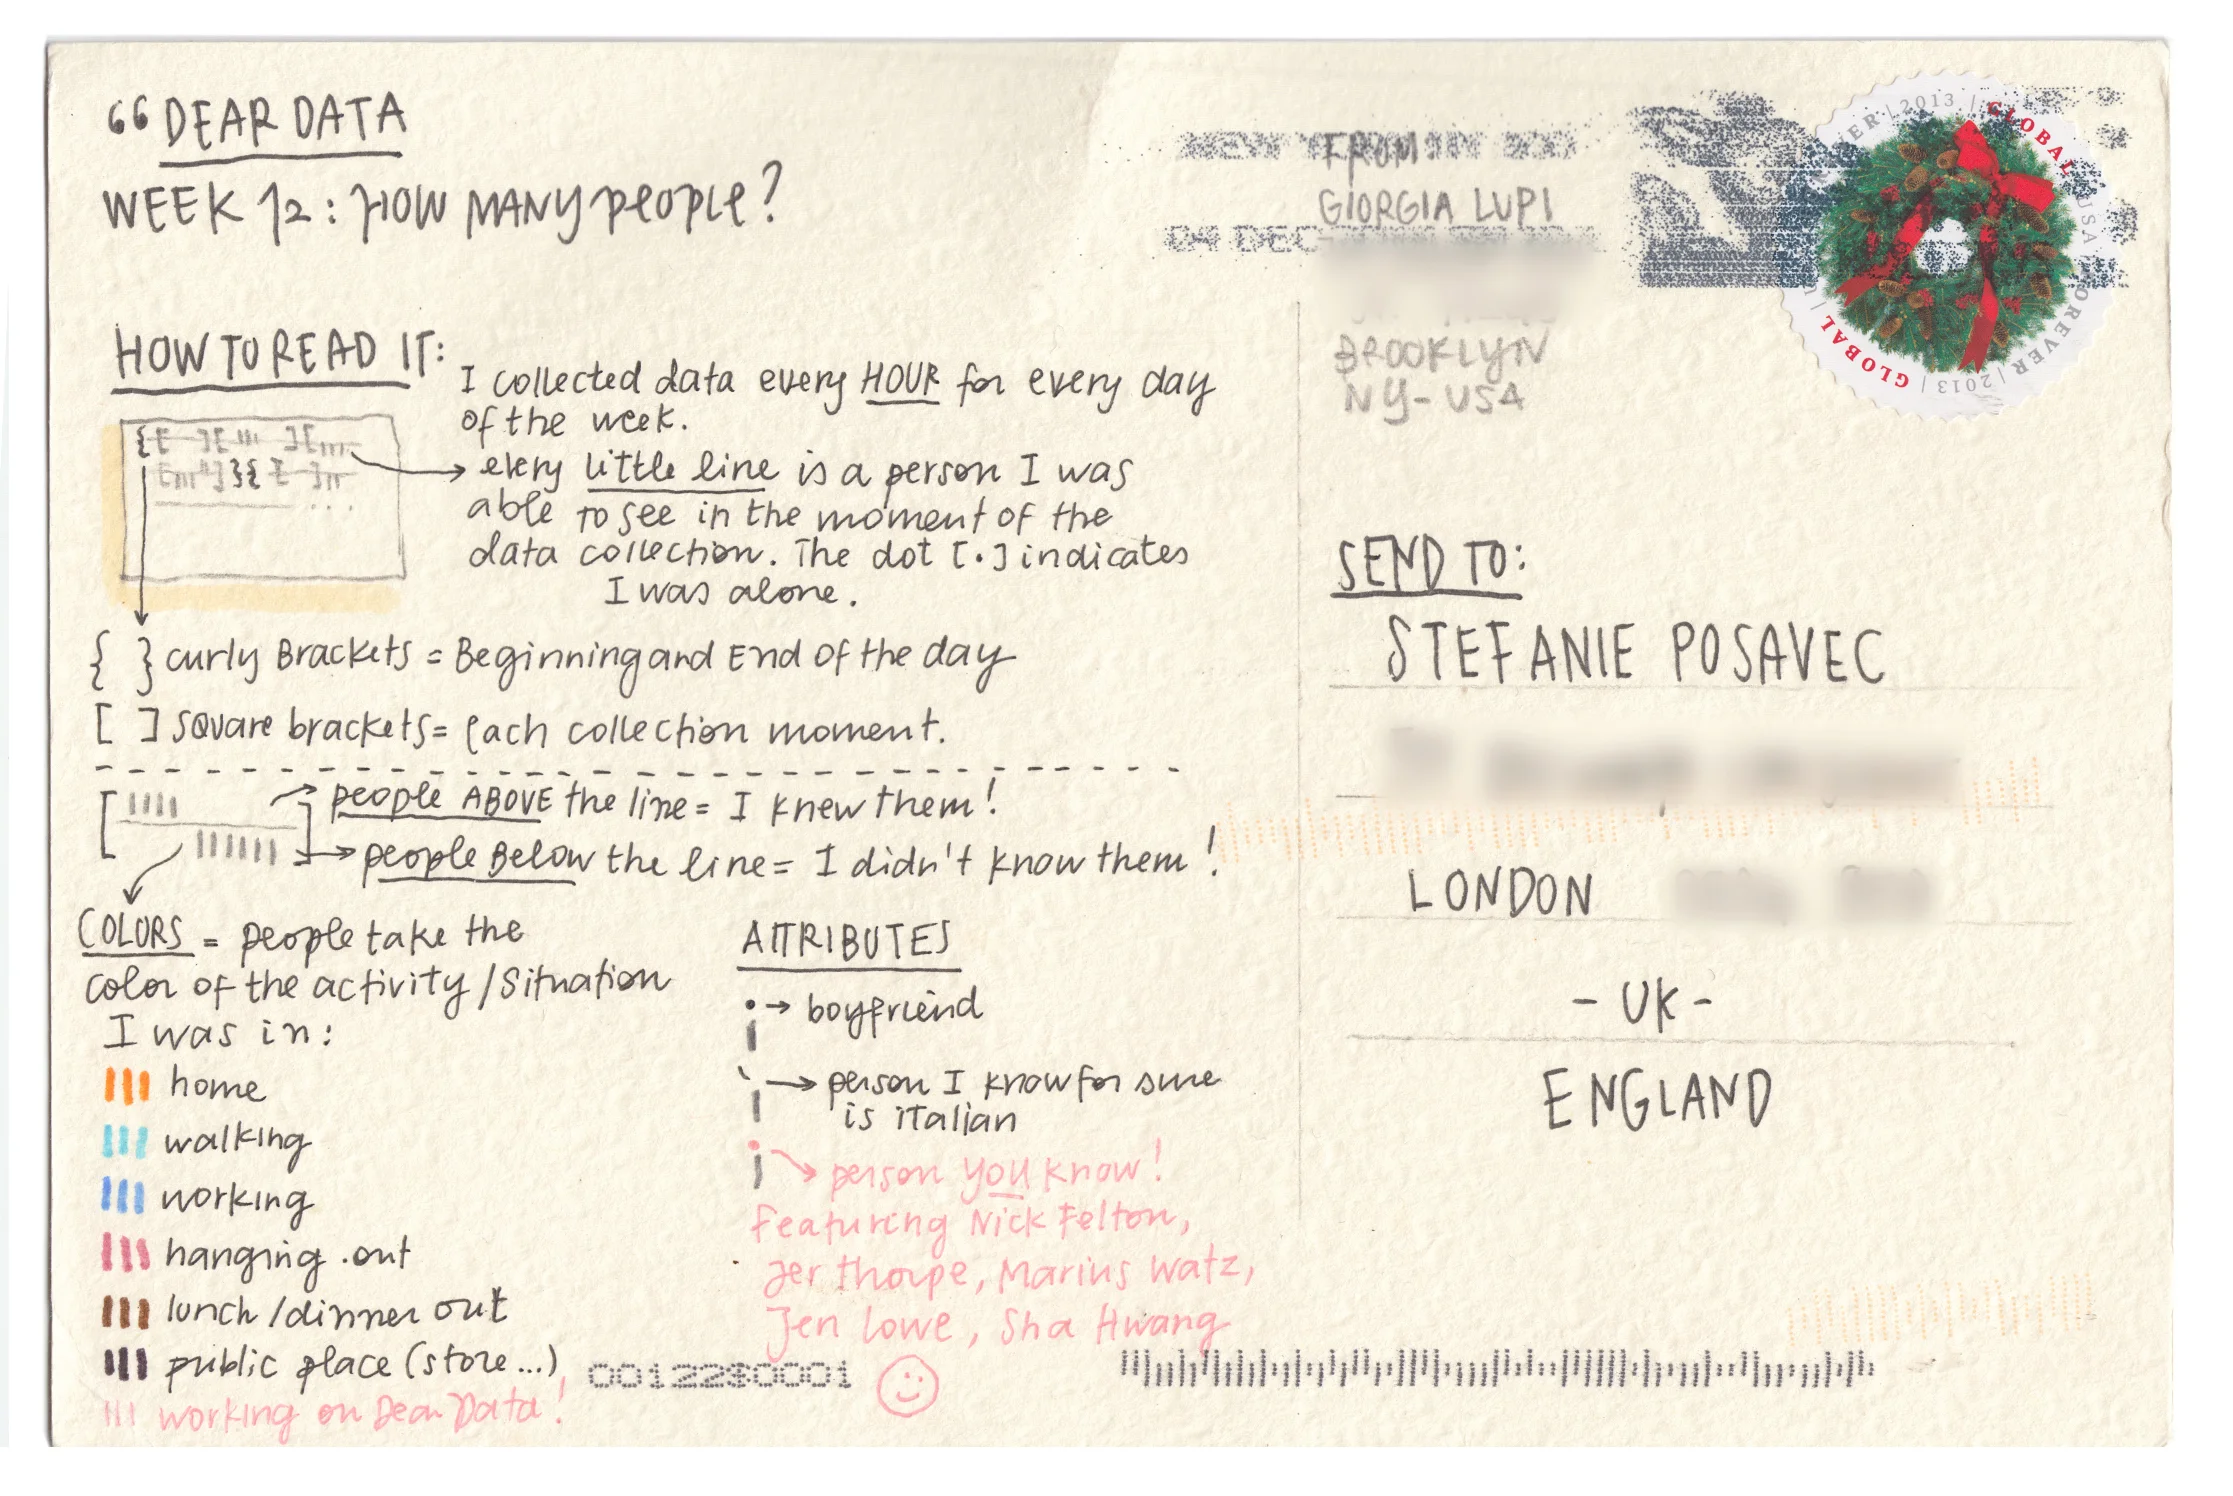 DEAR DATA
WEEK 12: HOW MANY PEOPLE?
HOW TO READ IT:
I collected data every HOUR for every day
of the week.
every little line is a person I was
able to see in the moment of the
data collection. The dot [·] indicates
I was alone.
{ } curly Brackets = Beginning and End of the day
[ ] square brackets = Each collection moment.
people ABOVE the line = I knew them!
people Below the line = I didn't know them!
COLORS = people take the
color of the activity / situation
I was in:
home
walking
working
hanging out
lunch / dinner out
public place (store...)
working on Dear Data!
ATTRIBUTES
boyfriend
person I know for sure
is italian
person you know!
Featuring Nick Felton,
Jer Thorpe, Marius Watz,
Jen Lowe, Sha Hwang
0012290001
FROM:
GIORGIA LUPI
04 DEC
BROOKLYN
NY - USA
GLOBAL | FOREVER | 2013 |
GLOBAL USA FOREVER | 2013 |
SEND TO:
STEFANIE POSAVEC
LONDON
- UK -
ENGLAND